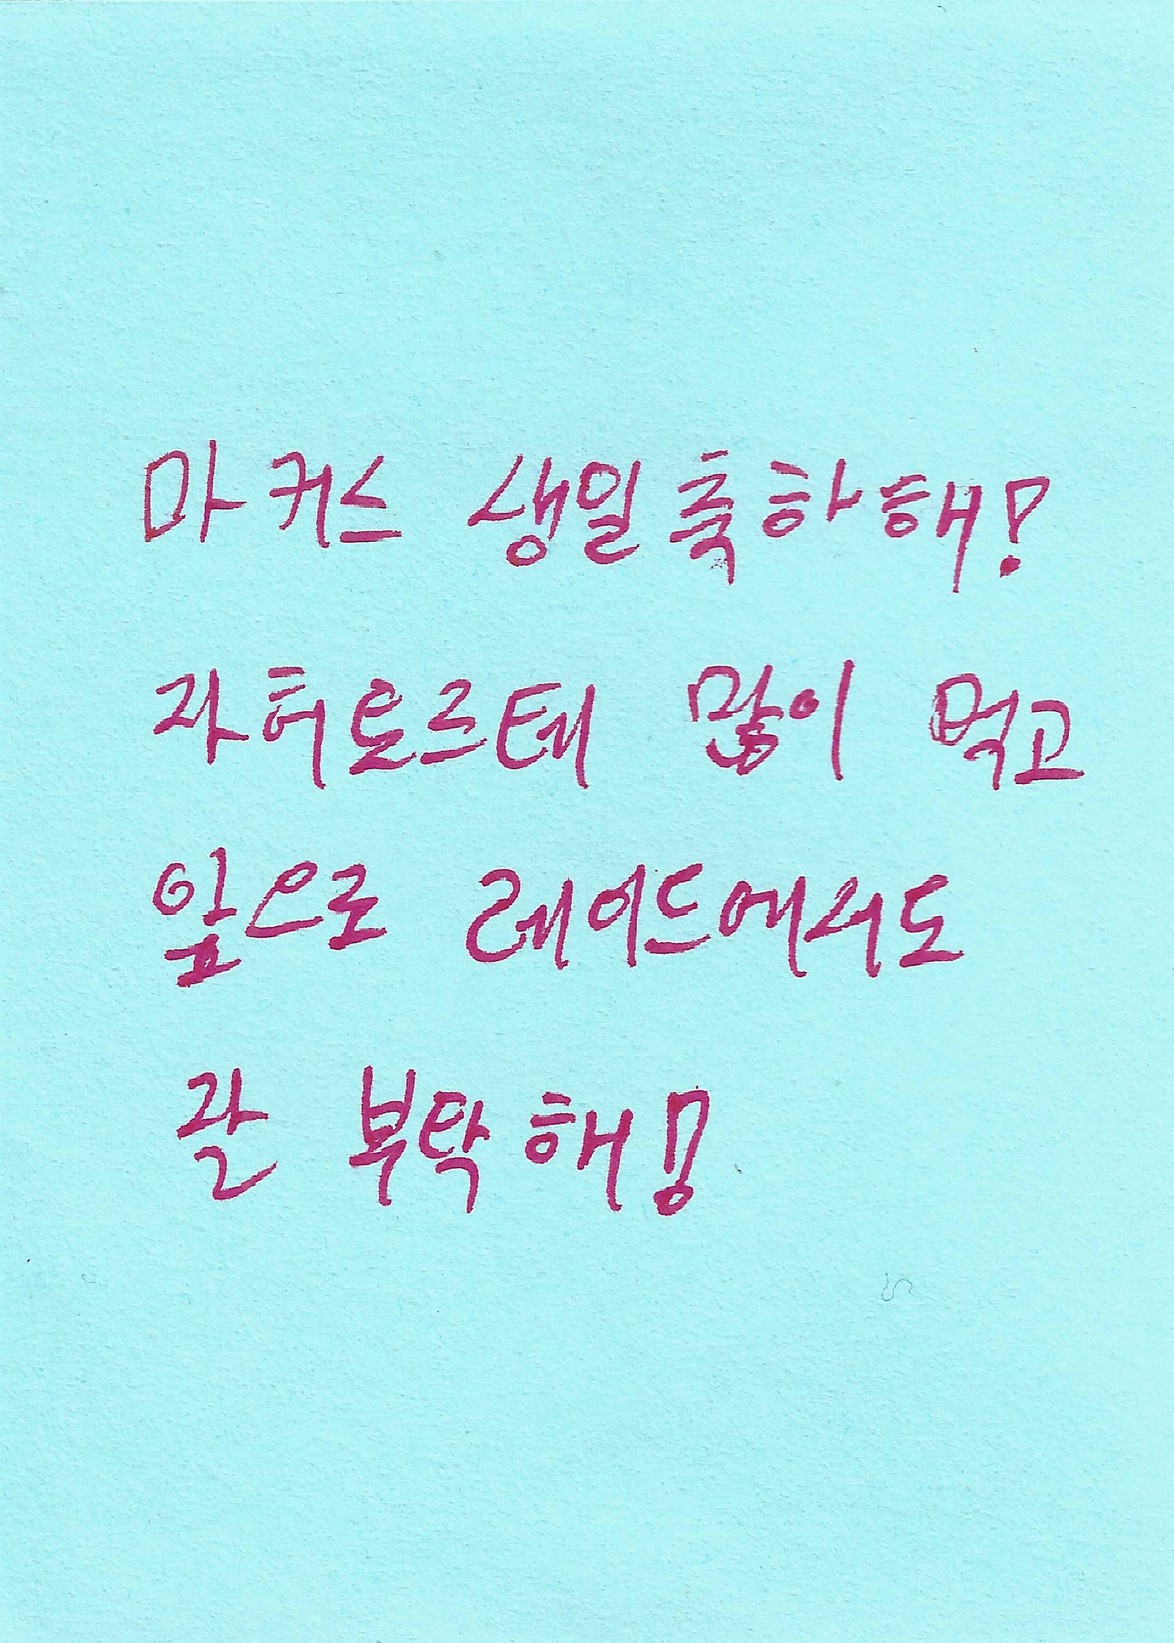 마커스 생일축하해!
자허토르테 많이 먹고
앞으로 레이드에서도
잘 부탁해!